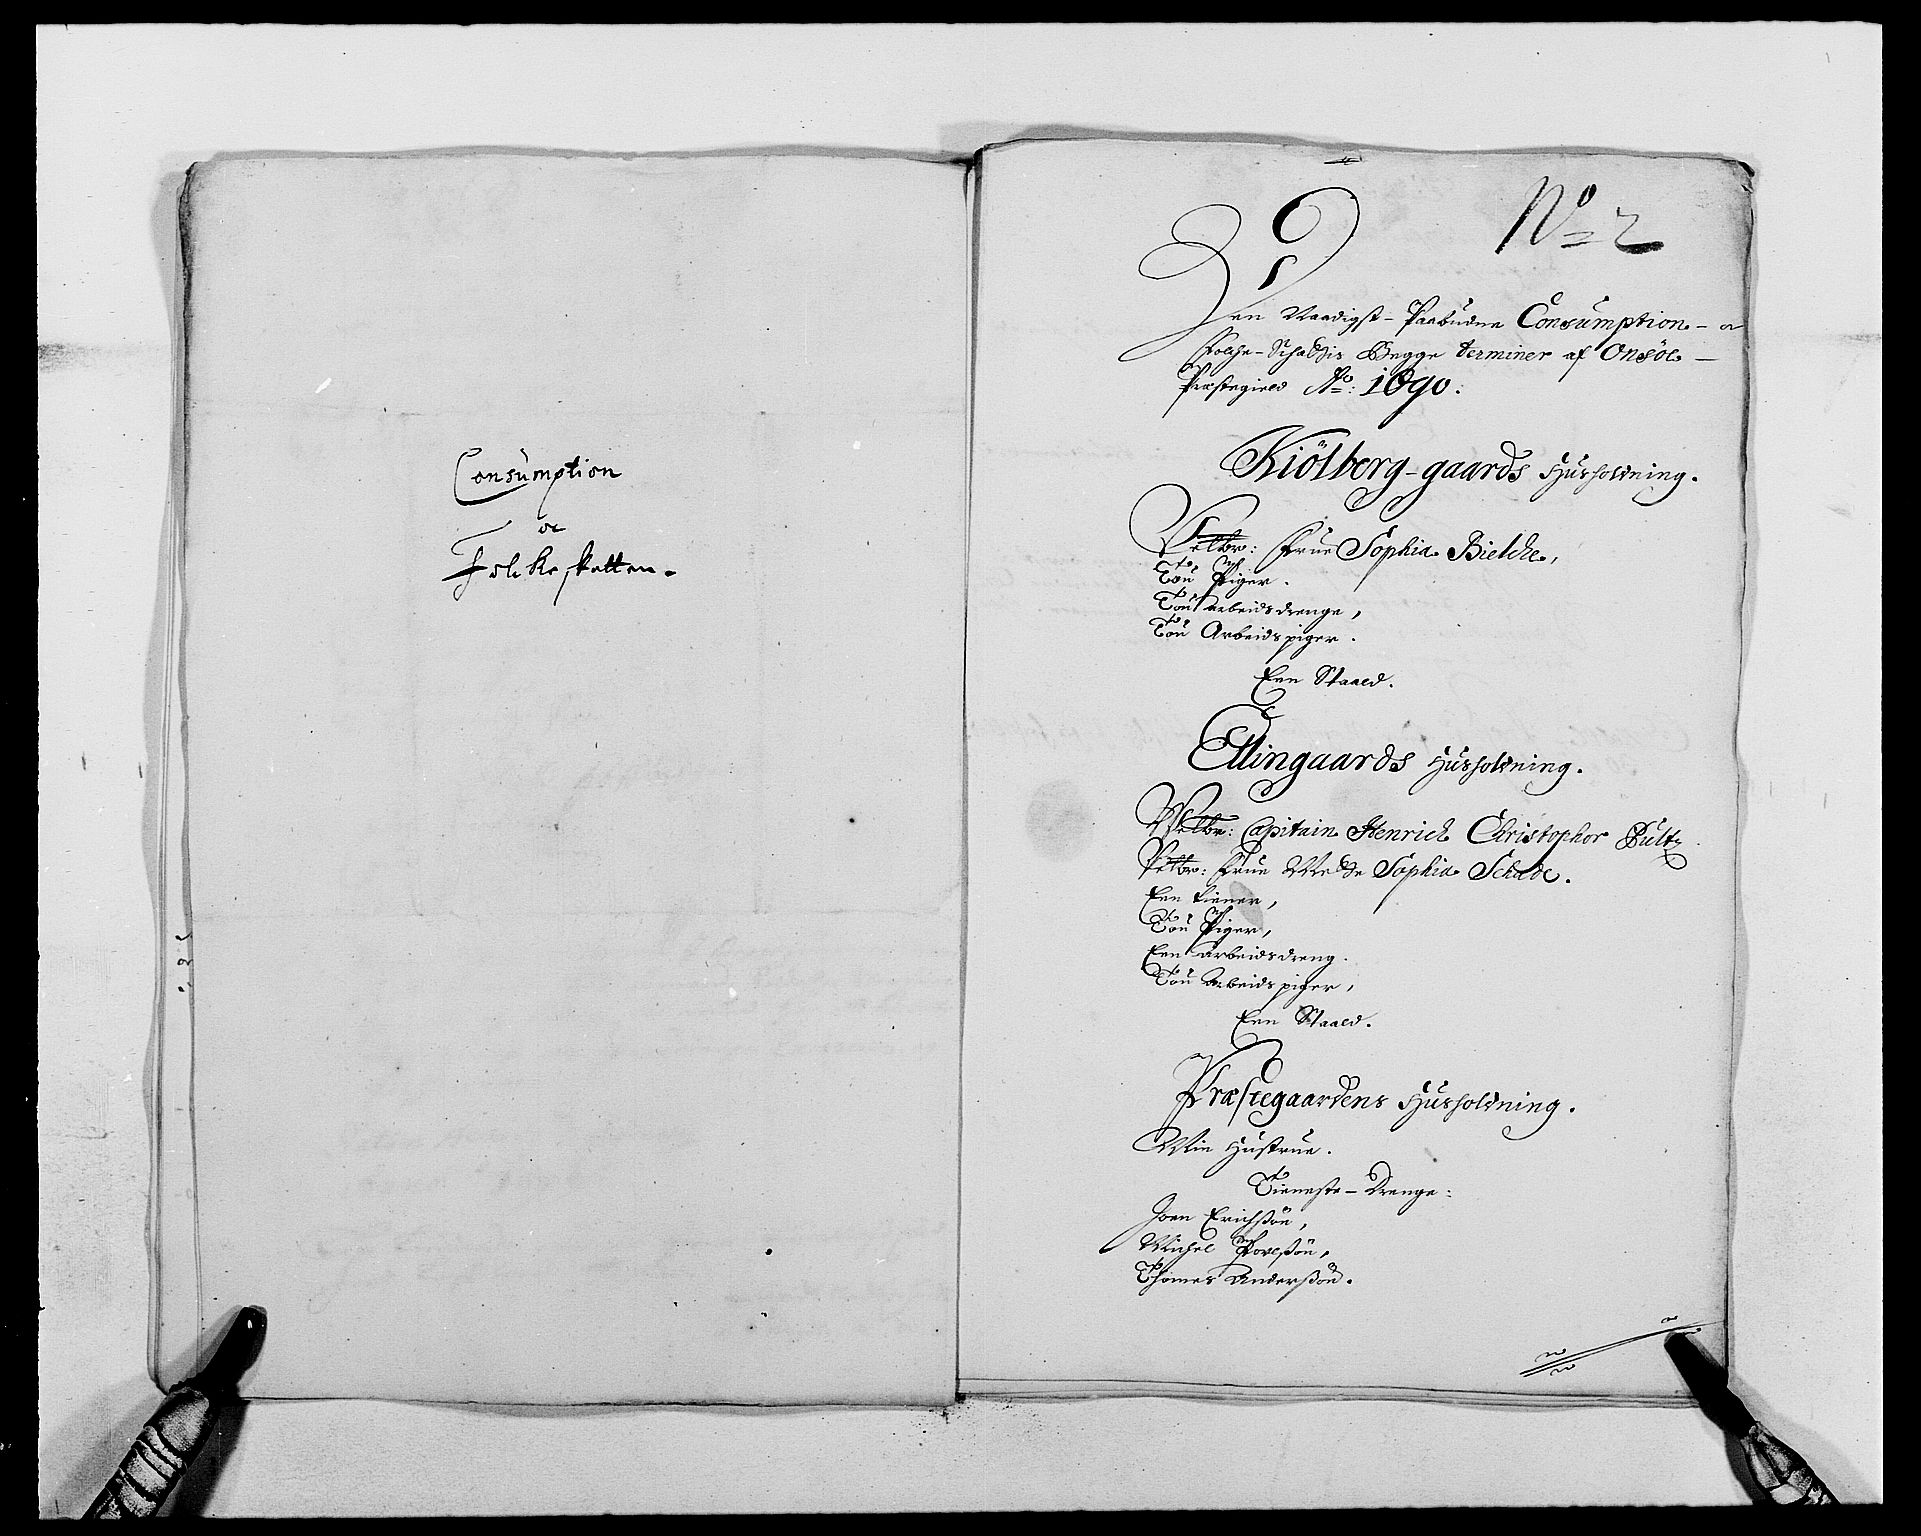 Consumption
oc
Folckeskatten.
No 2
Den Naadigst-Paabudne Consumption- oc
Folche-Schattis Begge terminer af Onsöe-
Præstegield Ao: 1690.
Kiölberg-gaards Huusholdning.
Velbr: Frue Sophia Bielche,
Tou Piger.
Tou arbeidsdrenge,
Tou Arbeidspiger.
Een Staald.
Ellingaards Huusholdning.
Welbr: Capitain Henrich Christophor Bultz
Velbr: Frue Mette Sophia Schade.
Een tiener,
Tou Piger,
Een arbeidsdreng.
Tou arbeidspiger,
Een Staald.
Præstegaardens Huusholdning.
Min Hustrue.
Tieneste-Drenge:
Joen Erichsøn,
Michel Povelsøn,
Thomes Andersøn.